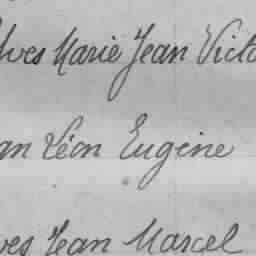 Yves Marie Jean Victo
an Léon Eugène
ves Jean Marcel